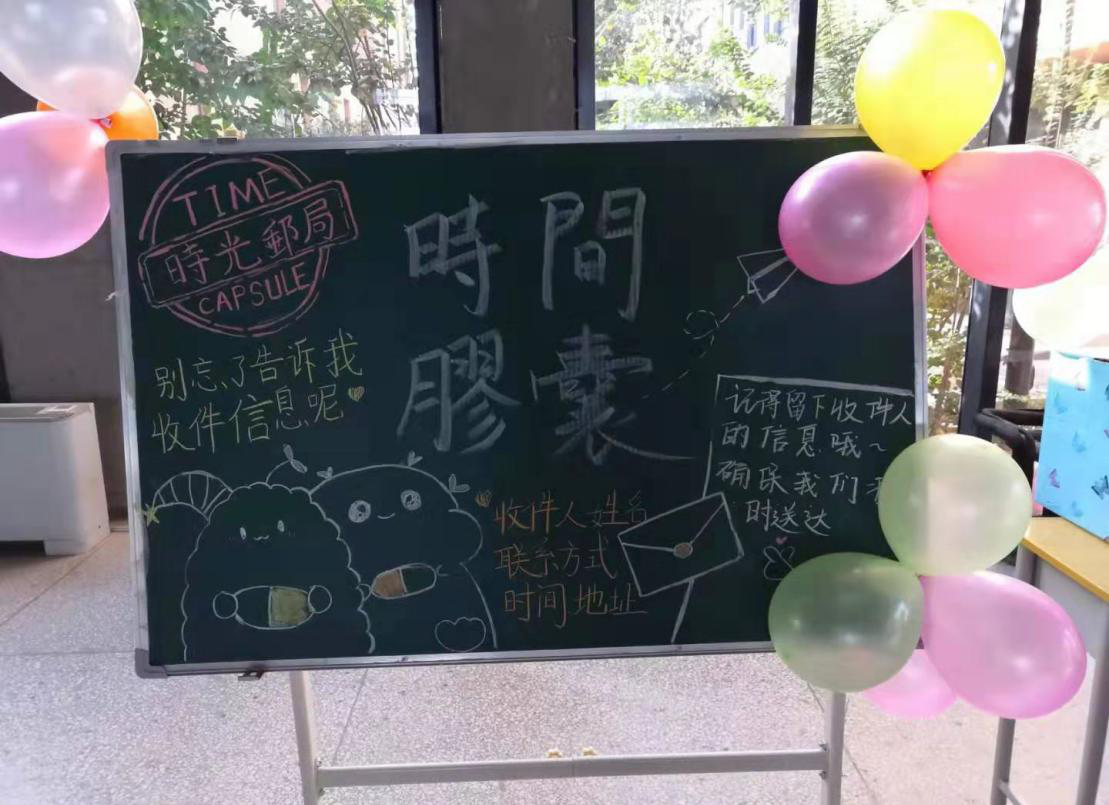 TIME
時光郵局
CAPSULE
時間
膠囊
别忘了告诉我
收件信息呢
记得留下收件人
的信息哦~
确保我们
时送达
收件人姓名
联系方式
时间地址